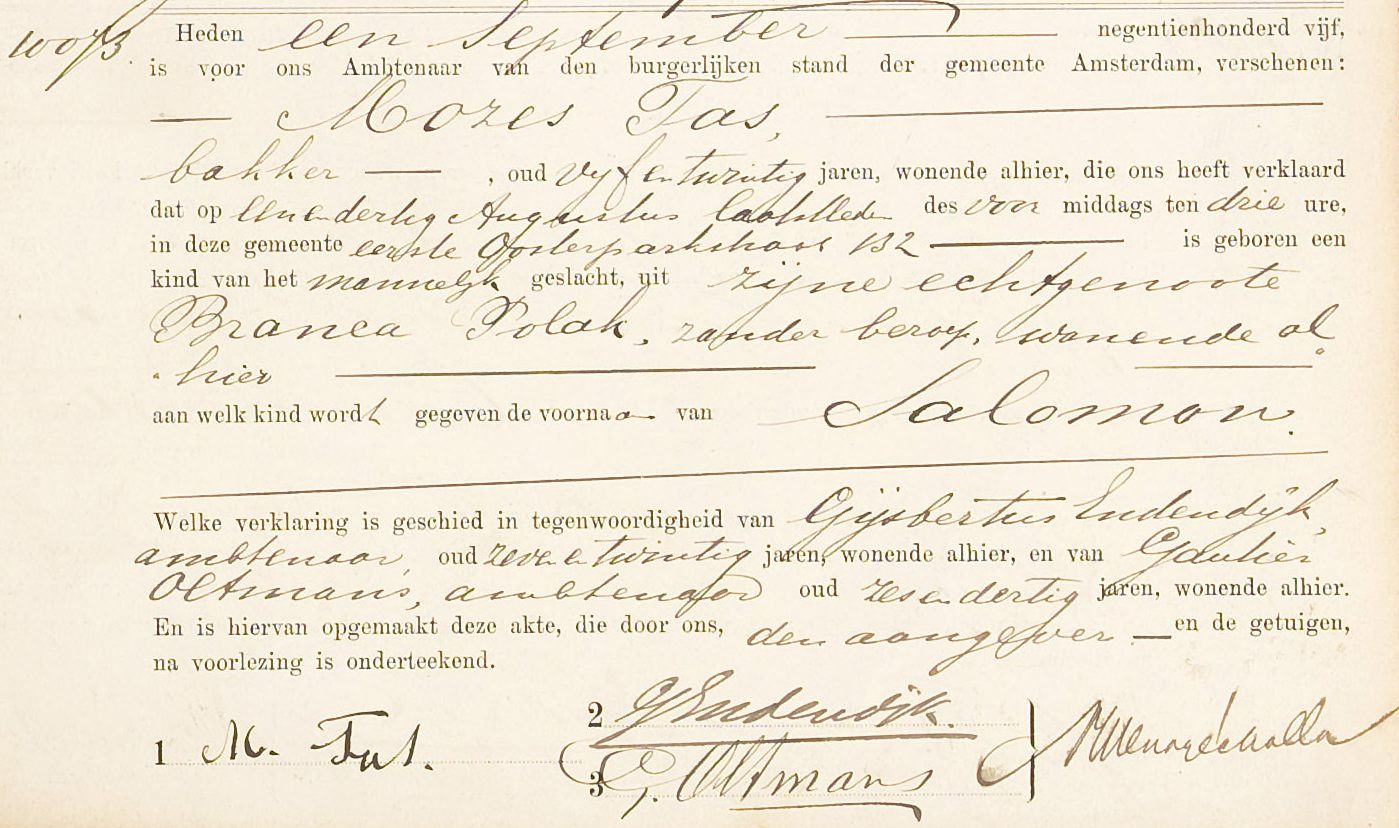 10073.
Heden een September negentienhonderd vijf,
is voor ons Ambtenaar van den burgerlijken stand der gemeente Amsterdam, verschenen:
Mozes Tas,
bakker , oud vijf en twintig jaren, wonende alhier, die ons heeft verklaard
dat op een en dertig Augustus laatstleden des voor middags ten drie ure,
in deze gemeente eerste Oosterparkstraat 132 is geboren een
kind van het mannelijk geslacht, uit zijne echtgenoote
Branca Polak, zonder beroep, wonende al
hier
aan welk kind wordt gegeven de voornaam van Salomon.
Welke verklaring is geschied in tegenwoordigheid van Gijsbertus Endendijk,
ambtenaar, oud zeven en twintig jaren, wonende alhier, en van Gautier
Oltmans, ambtenaar oud zes en dertig jaren, wonende alhier.
En is hiervan opgemaakt deze akte, die door ons, den aangever en de getuigen,
na voorlezing is onderteekend.
1 M. Tas.
2 G Endendijk.
3 G. Oltmans